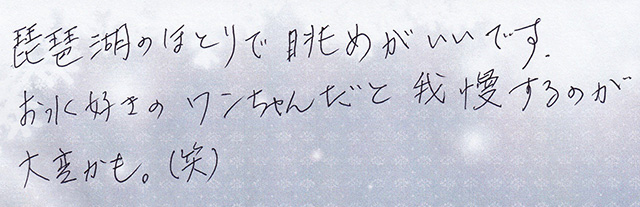 琵琶湖のほとりで眺めがいいです.
お水好きのワンちゃんだと我慢するのが
大変かも。(笑)